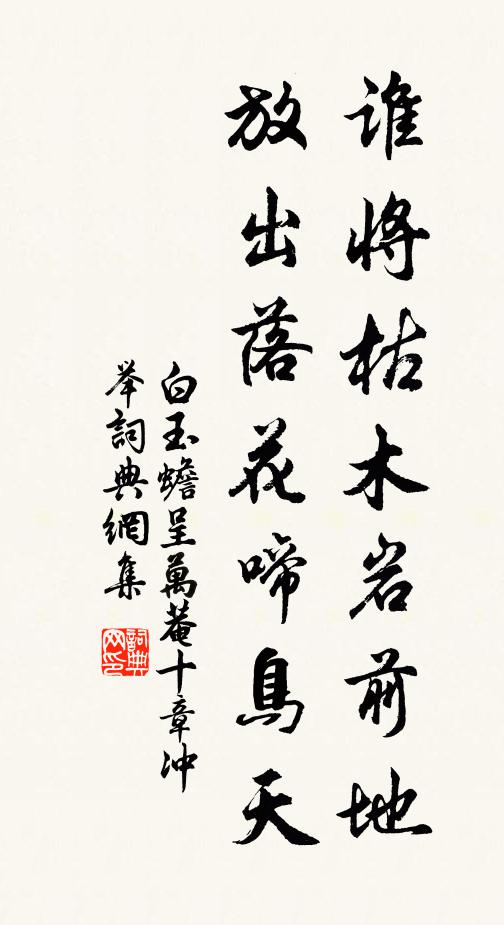 谁将枯木岩前地
放出落花啼鳥天
白玉蟾呈萬菴十章冲
举詞典網集
詞典网印